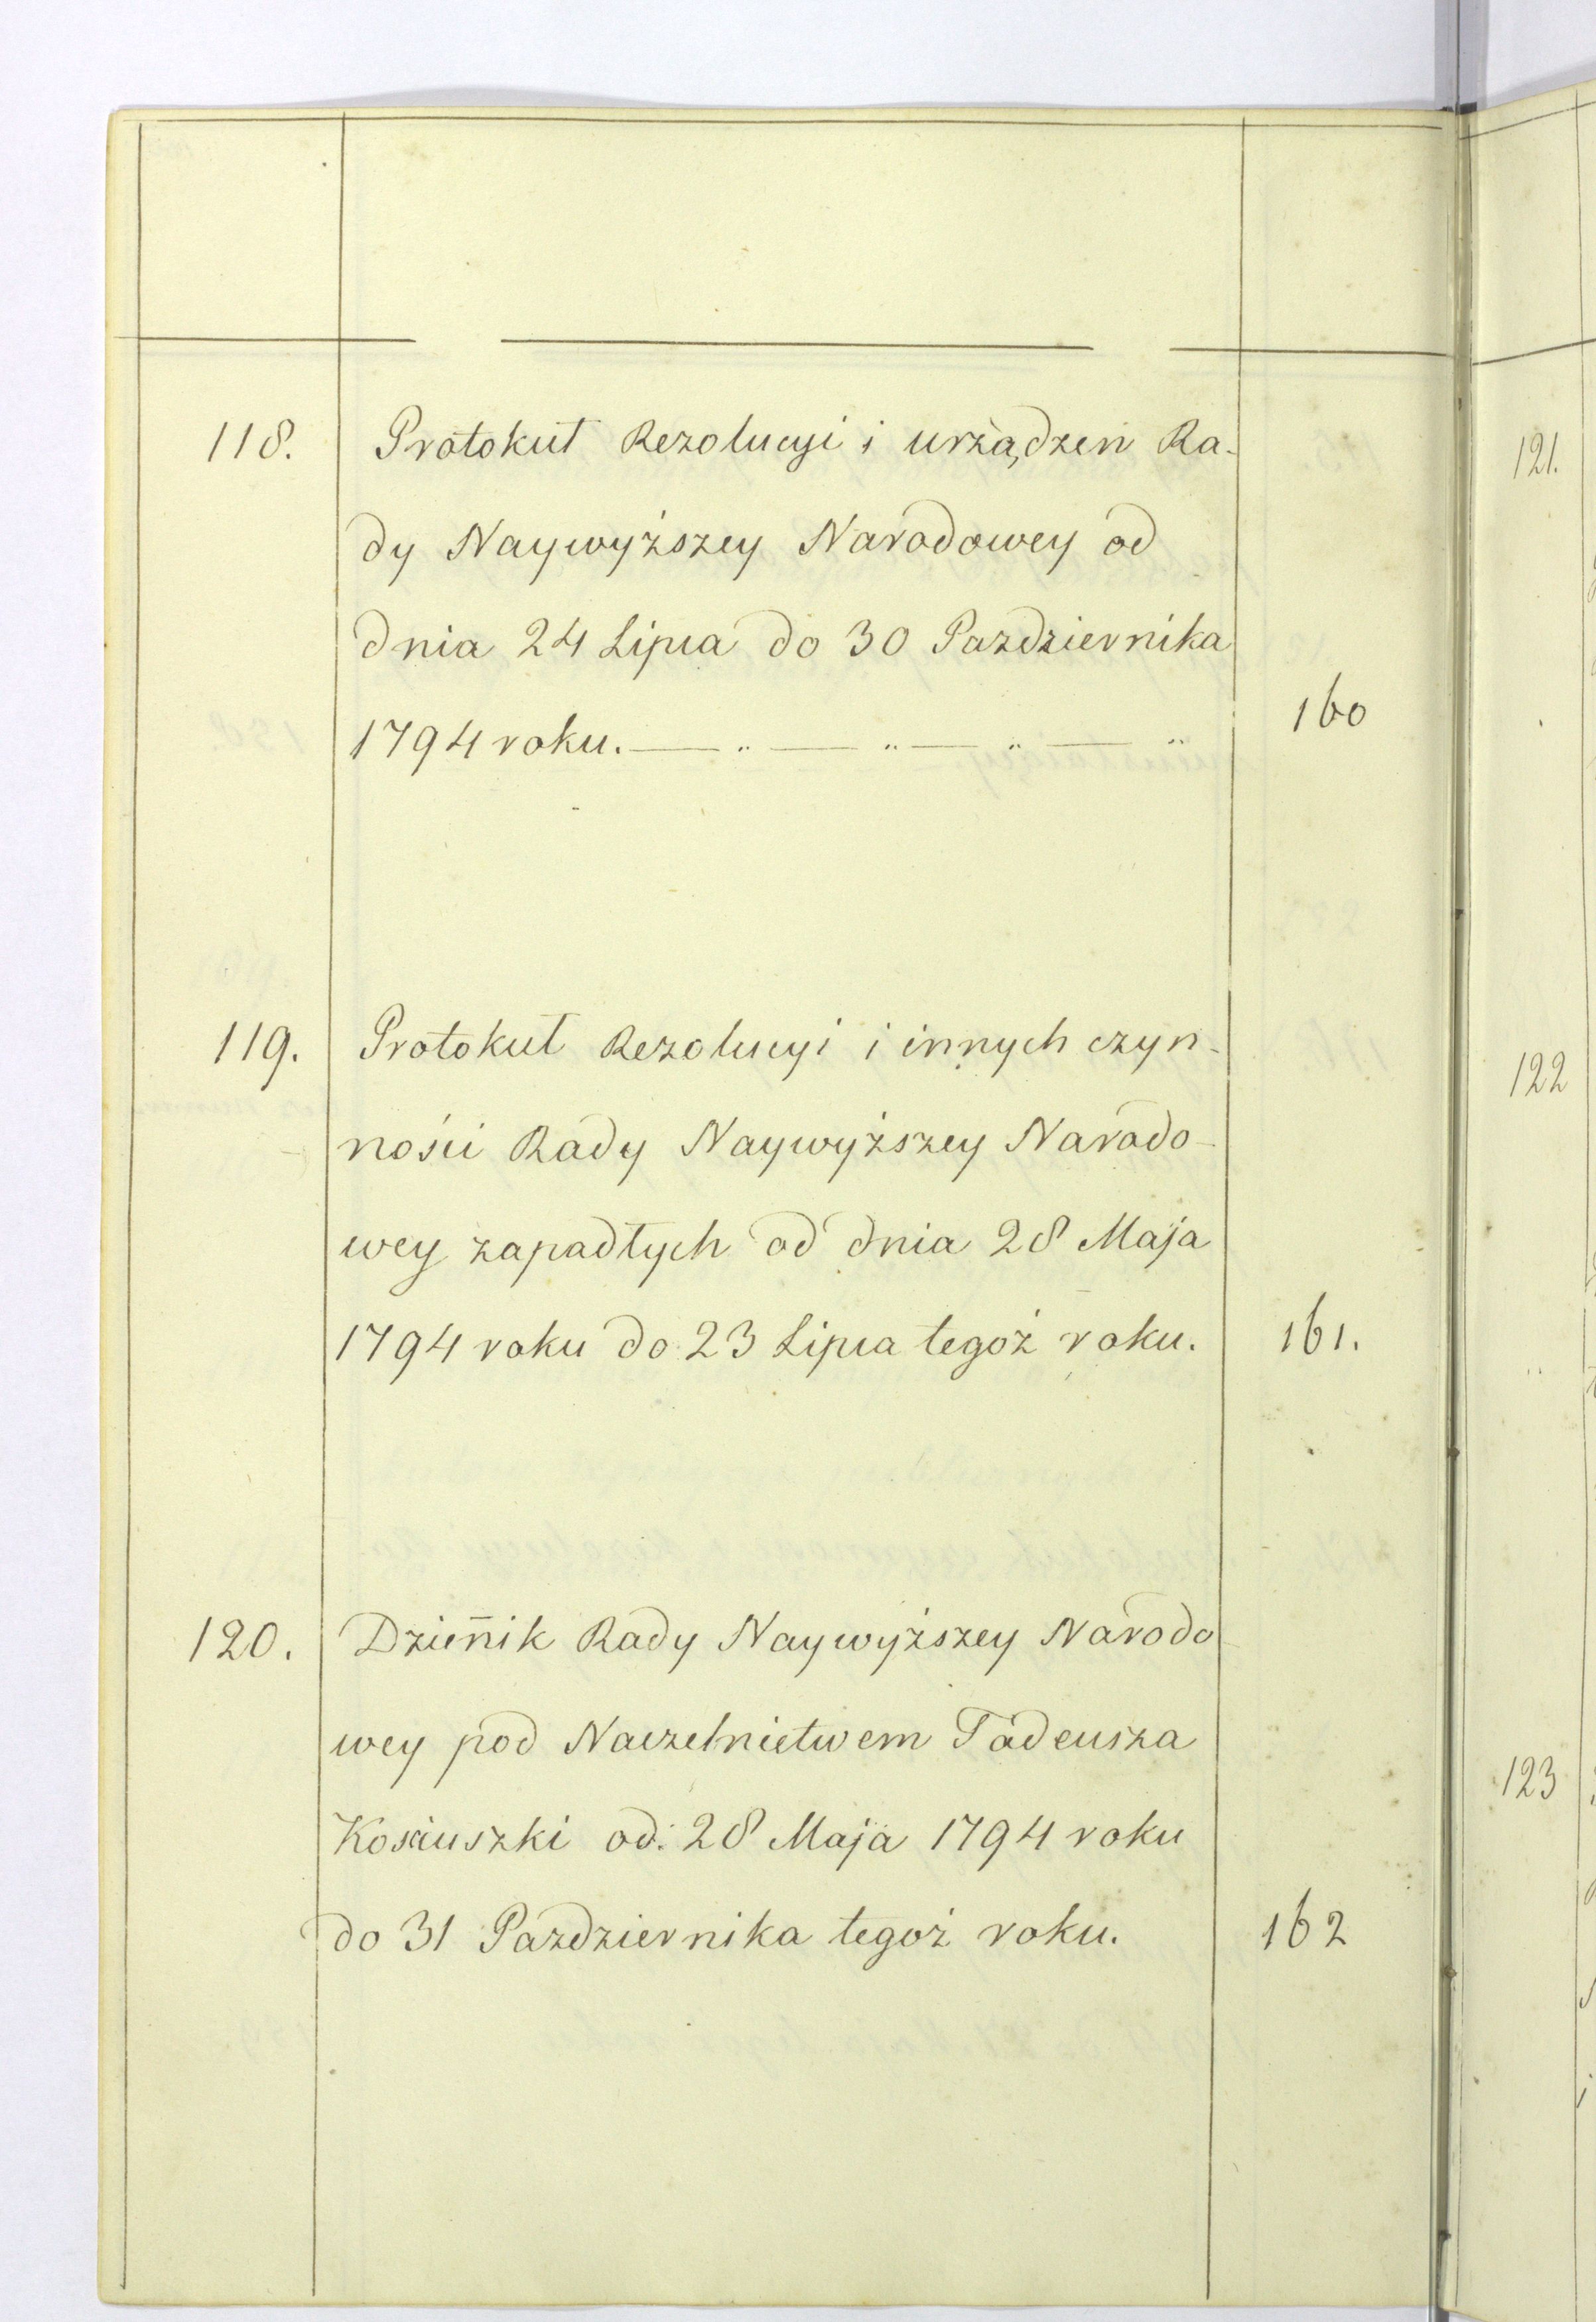 118. Protokuł Rezolucyi i urządzeń Ra-
dy Naywyższey Narodowey od
dnia 24 Lipca do 30 Pazdziernika
1794 roku. — „ — „ — „ — „ 160
119. Protokuł Rezolucyi i innych czyn-
ności Rady Naywyższey Narodo-
wey zapadłych od dnia 28 Maja
1794 roku do 23 Lipca tegoż roku. 161.
120. Dzien̄ik Rady Naywyższey Narodo-
wey pod Naczelnictwem Tadeusza
Kosciuszki od 28 Maja 1794 roku
do 31 Pazdziernika tegoż roku. 162
121.
122
123